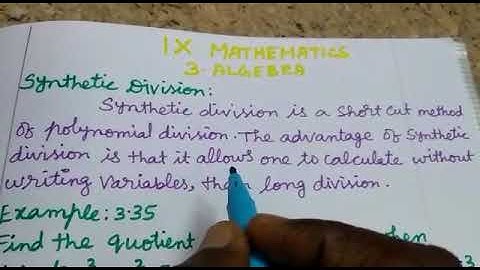 IX MATHEMATICS
3-ALGEBRA
Synthetic Division:
Synthetic division is a short cut method
of polynomial division. The advantage of synthetic
division is that it allows one to calculate without
writing variables, than long division.
Example: 3.35
Find the quotient when